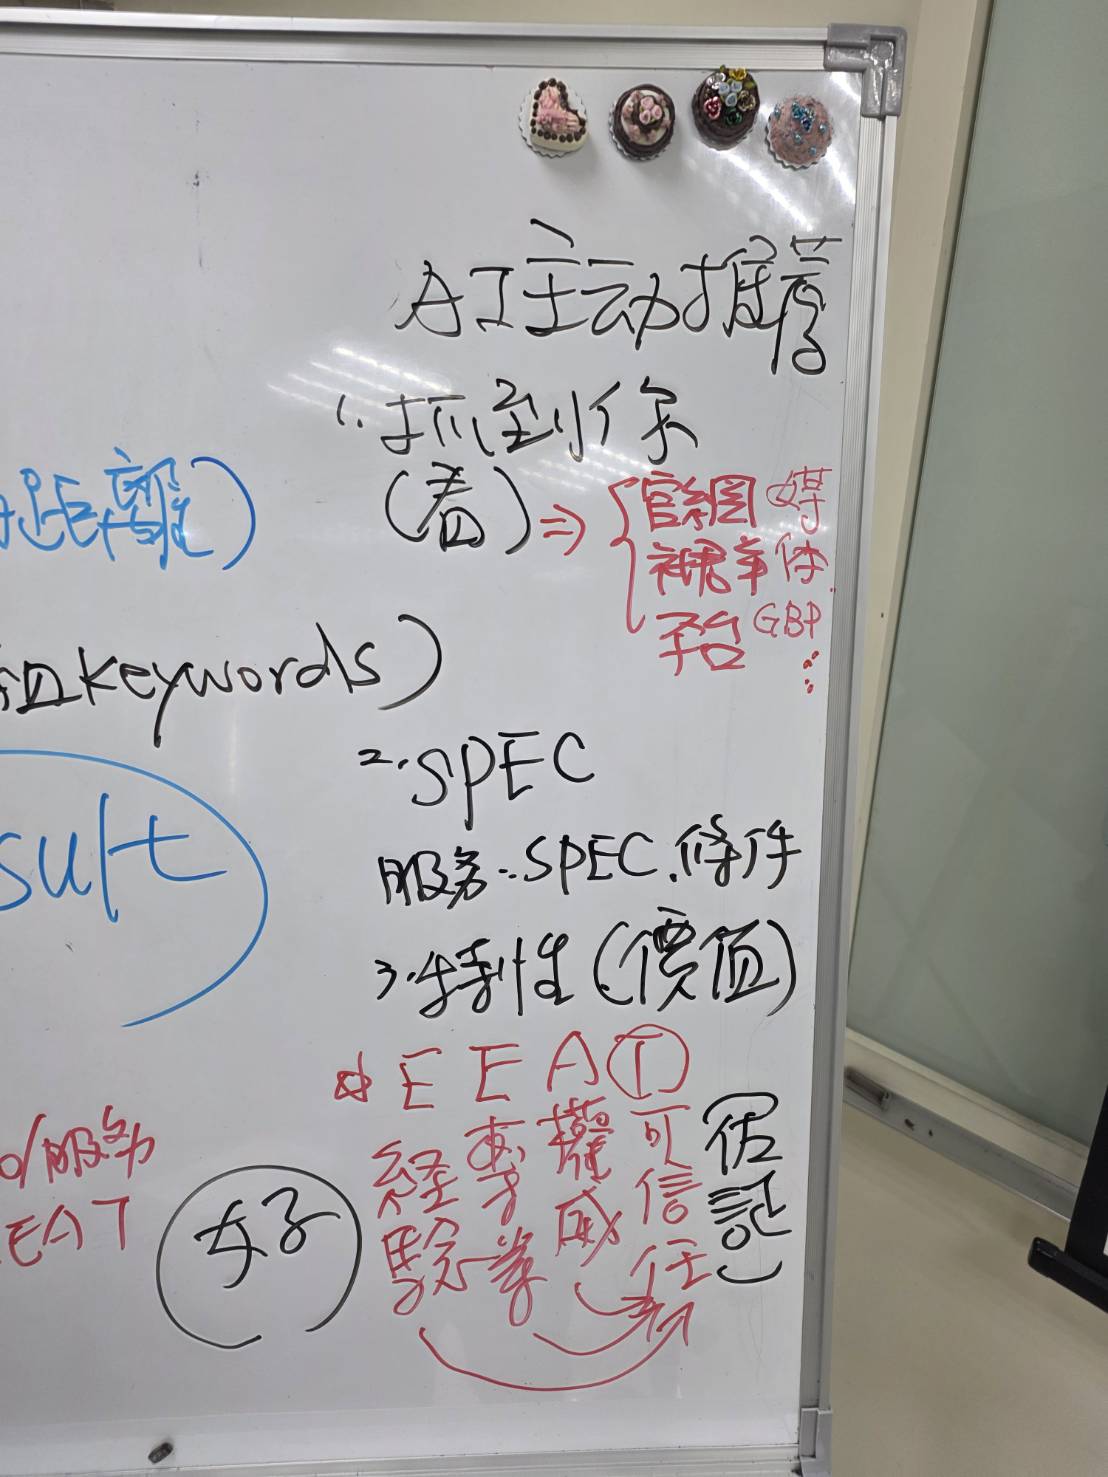 AI主动推薦
1. 抓到你
(看) ⇒ { 官網 媒体
平台 GBP
距離)
keywords)
2. SPEC
服务..SPEC.條件
sult
3.特性(價值)
☆ E E A T
経験 専業 權威 可信任 (佐証)
/服务
EAT
好